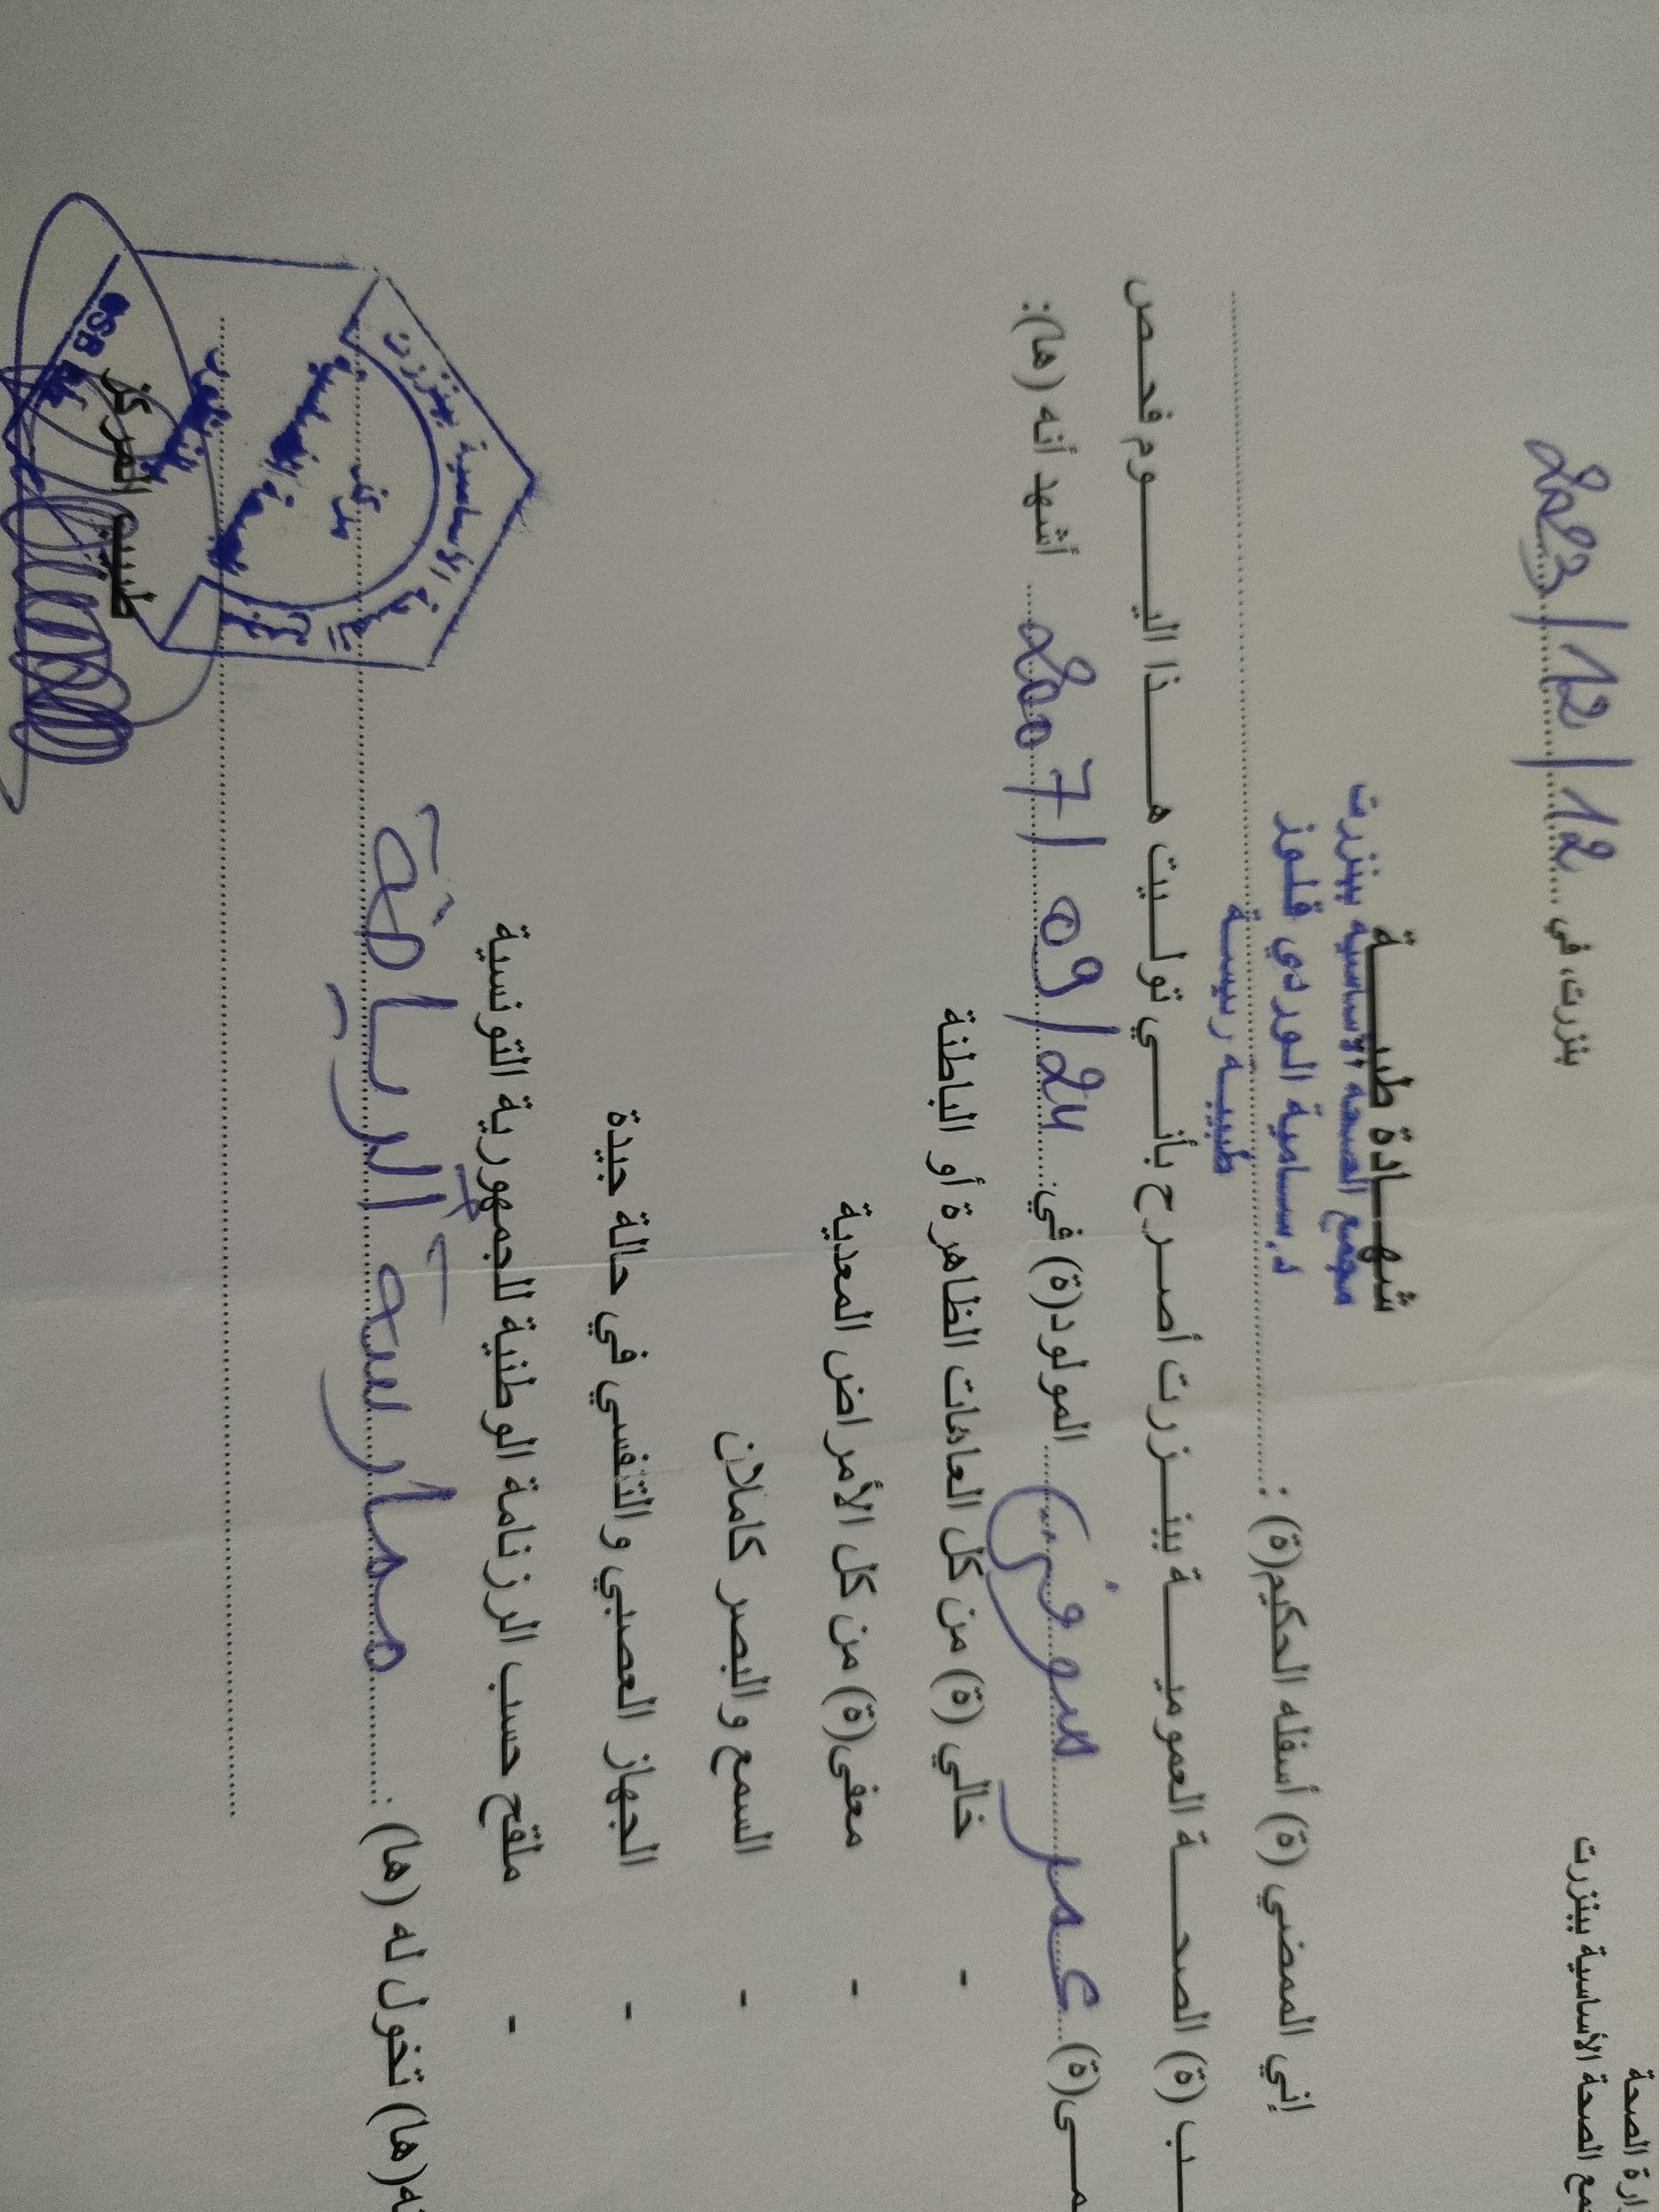 ارة الصحة
مع الصحة الأساسية ببنزرت
بنزرت، في 12/12/2023
شهـــادة طبيـــــة
مجمع الصحة الأساسية ببنزرت
د. سامية الوردي قلوز
طبيبة رئيسة
إني الممضي (ة) أسفله الحكيم(ة) :
ـب (ة) الصحـــة العموميـــــة ببنـــزرت أصرح بأنـــي توليت هـــــذا اليـــــــوم فحص
مـــى(ة) عمر المولود(ة) في: 24/09/2007 أشهد أنه (ها):
- خالي (ة) من كل العاهات الظاهرة أو الباطنة
- معفى(ة) من كل الأمراض المعدية
- السمع والبصر كاملان
- الجهاز العصبي والتنفسي في حالة جيدة
- ملقح حسب الرزنامة الوطنية للجمهورية التونسية
ته(ها) تخول له (ها) : ممارسة الرياضة
طبيب المركز
الأساسية ببنزرت
مركز